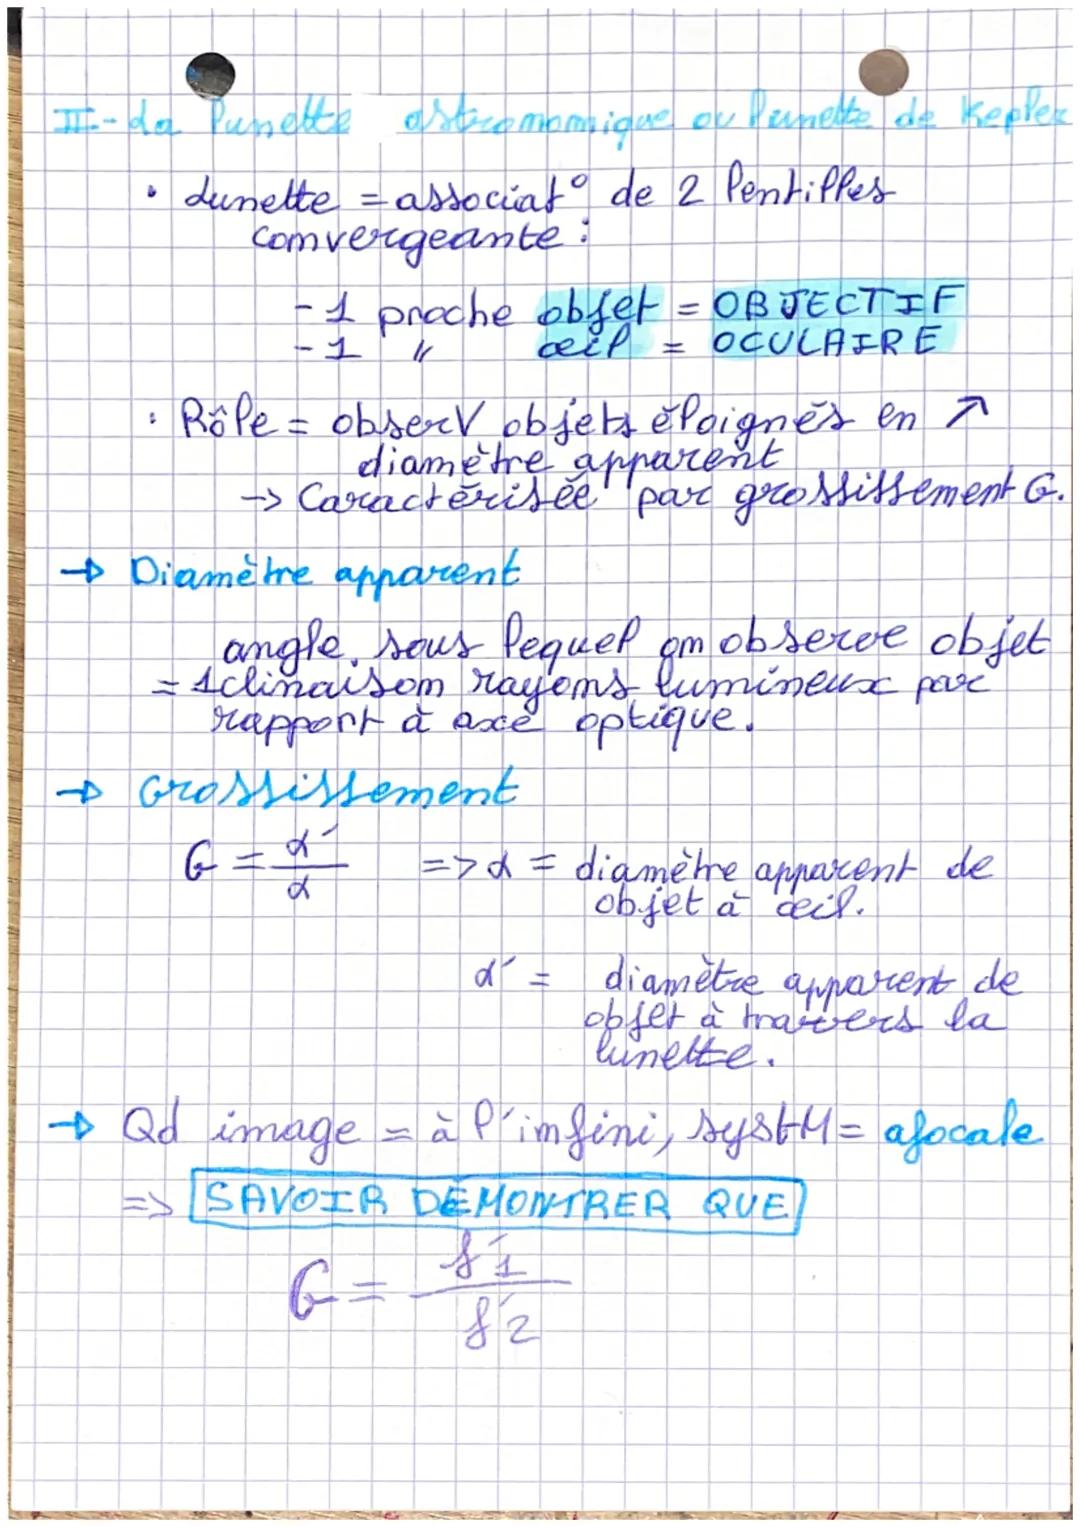 II - La lunette astronomique ou lunette de Kepler
• Lunette = associat° de 2 lentilles
convergeante :
- 1 proche objet = OBJECTIF
- 1 " œil = OCULAIRE
: Rôle = observ objets éloignés en ↗
diamètre apparent
-> Caractérisée par grossissement G.
→ Diamètre apparent
angle sous lequel on observe objet
= 1clinaison rayons lumineux par
rapport à axe optique.
→ Grossissement
G = α'/α => α = diamètre apparent de
objet à œil.
α' = diamètre apparent de
objet à travers la
lunette.
→ Qd image = à l'infini, systM = afocale
=> SAVOIR DÉMONTRER QUE
G = f'1/f'2